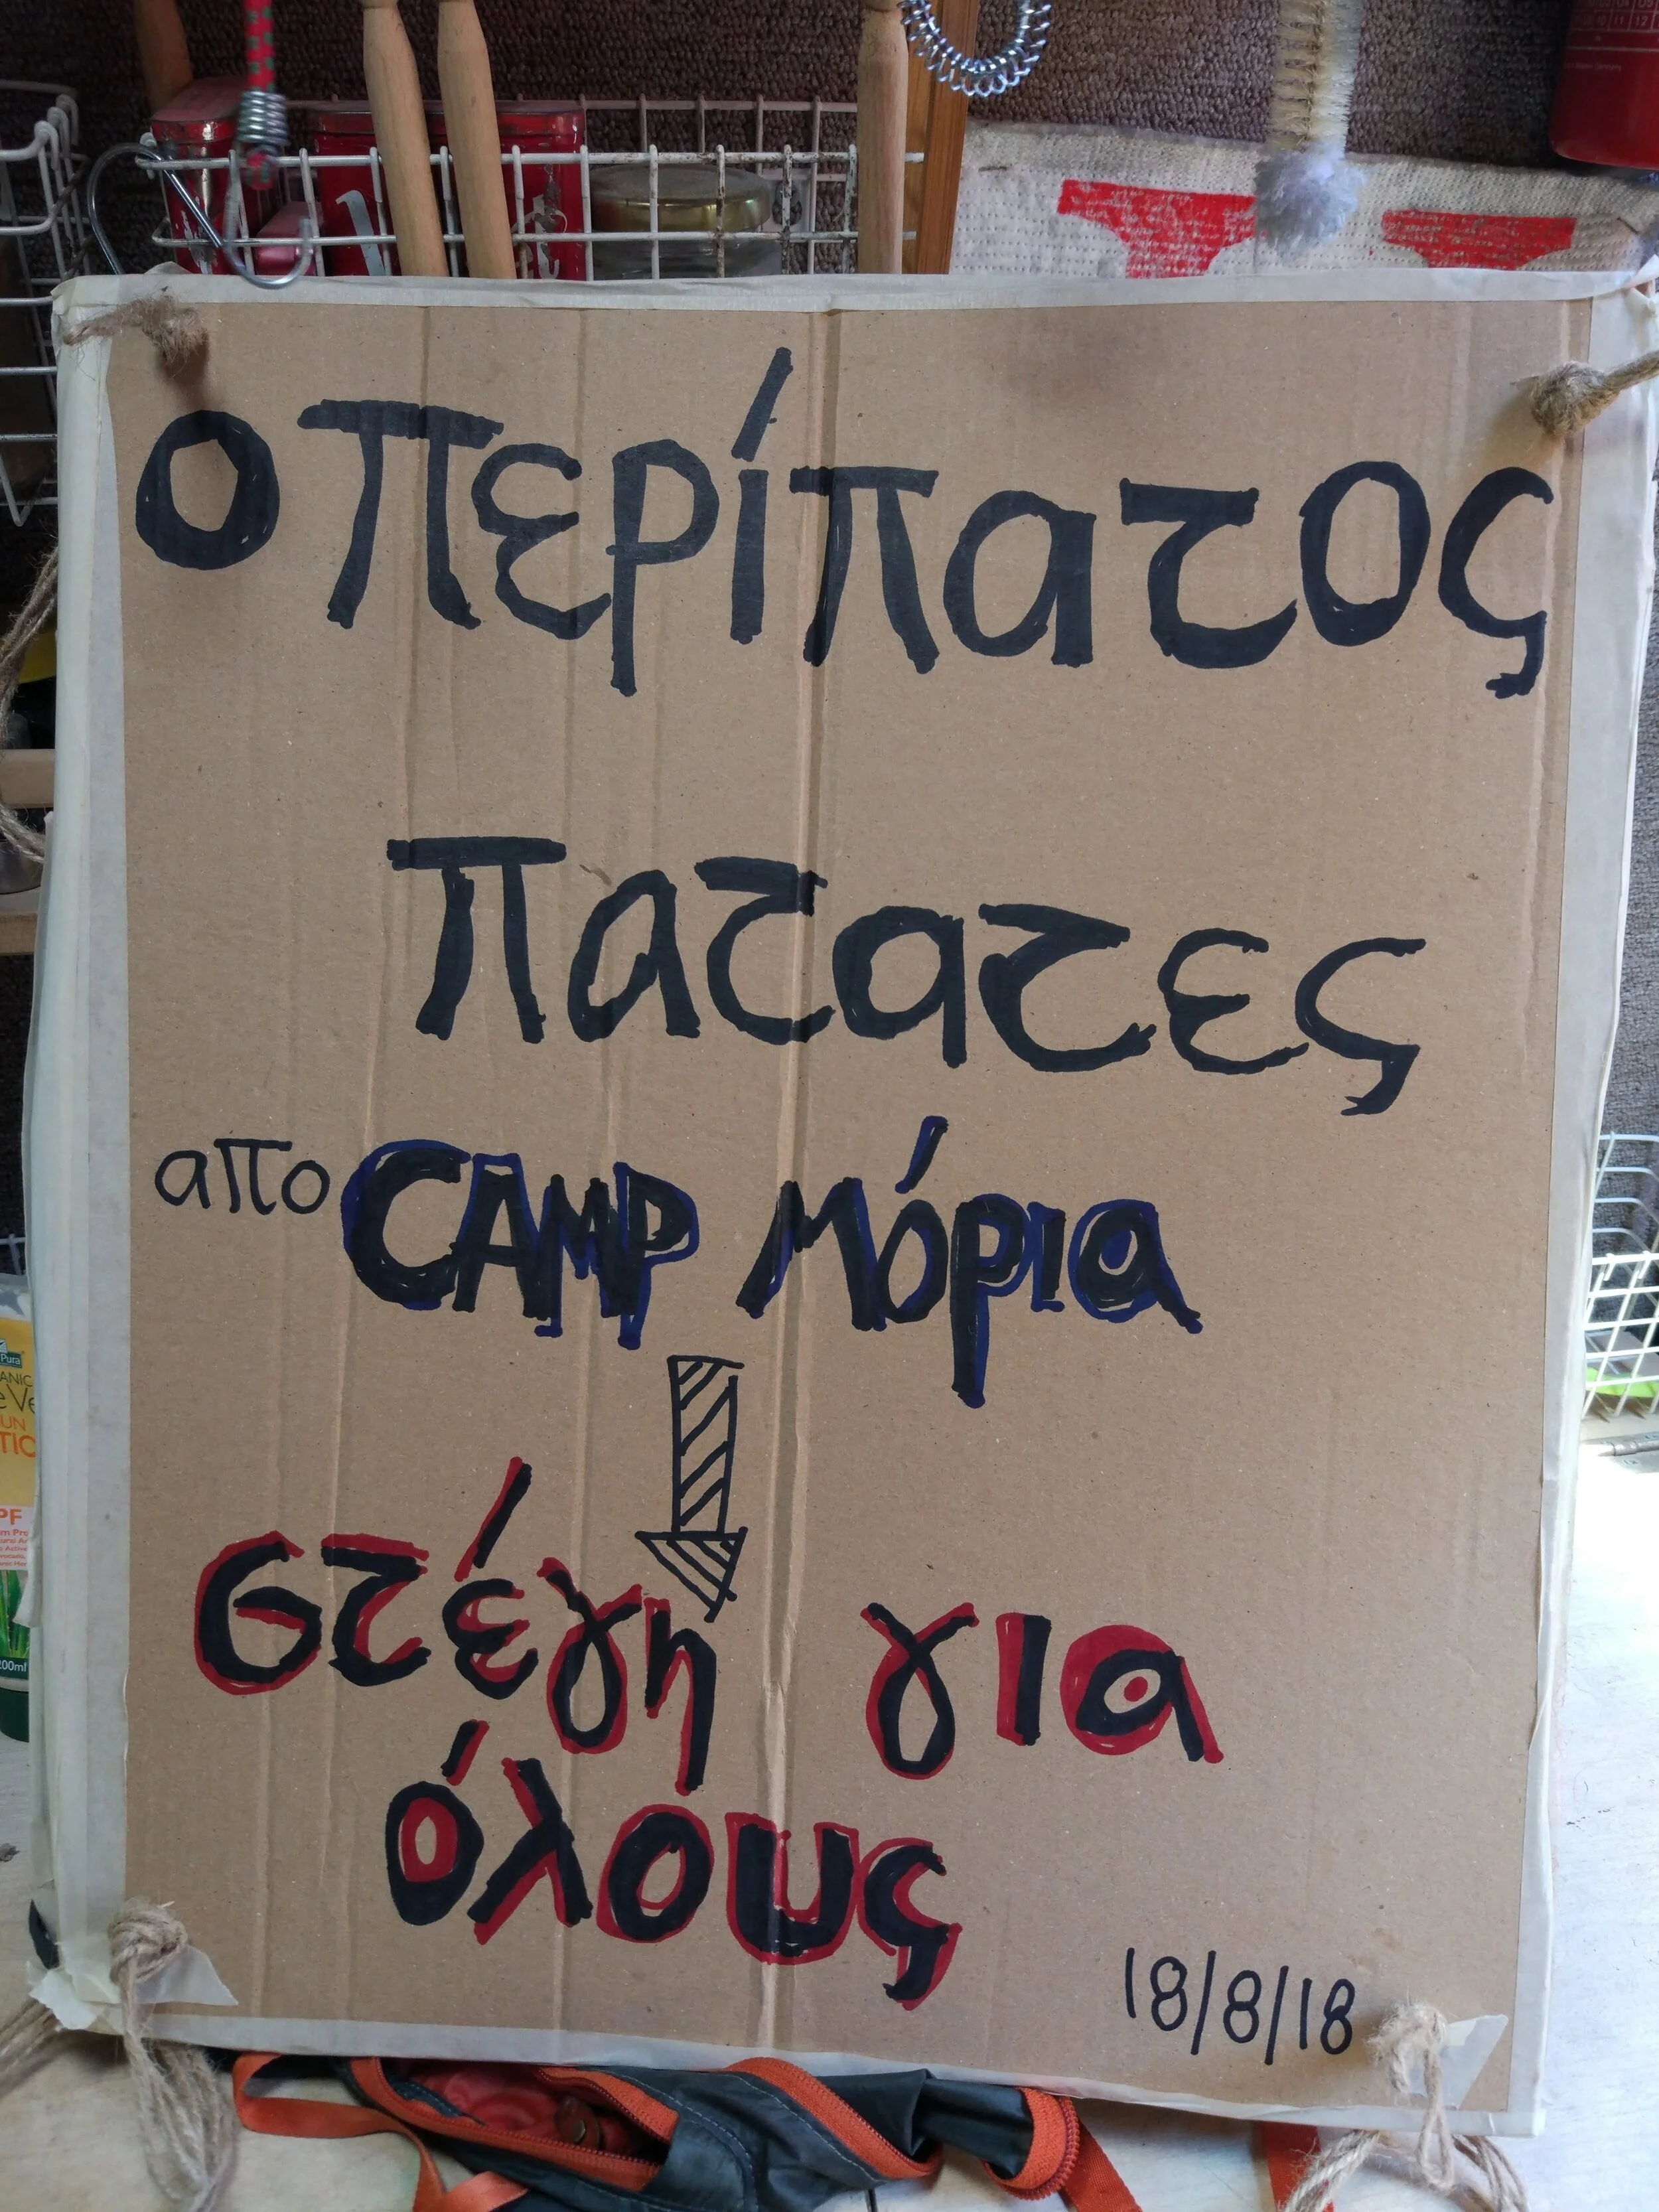 ο περίπατος
πατατες
απο CAMP Μόρια
στέγη για
όλους
18/8/18
Pura
200ml